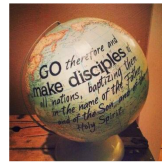 GO therefore and
make disciples of
all nations, baptizing them
in the name of the Father
and of the Son, and of the
Holy Spirit.